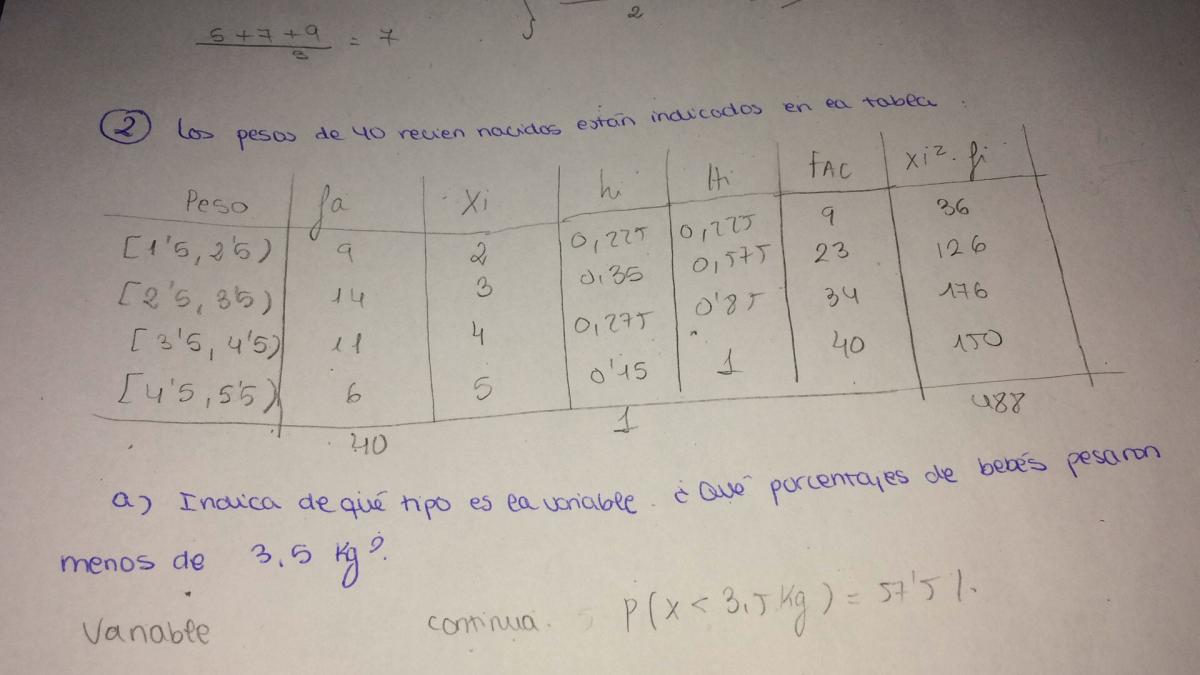 5 + 7 + 9 / 3 = 7
2
② Los pesos de 40 recien nacidos están indicados en la tabla :
Peso fa Xi hi Hi FAC xi². fi
[1'5, 2'5) 9 2 0,225 0,225 9 36
[2'5, 3'5) 14 3 0,35 0,575 23 126
[3'5, 4'5) 11 4 0,275 0'85 34 176
[4'5, 5'5) 6 5 0'15 1 40 150
40 1 488
a) Indica de qué tipo es la variable. ¿Qué porcentajes de bebés pesaron
menos de 3.5 Kg?
Variable continua. P(X < 3,5 Kg) = 57'5 %.